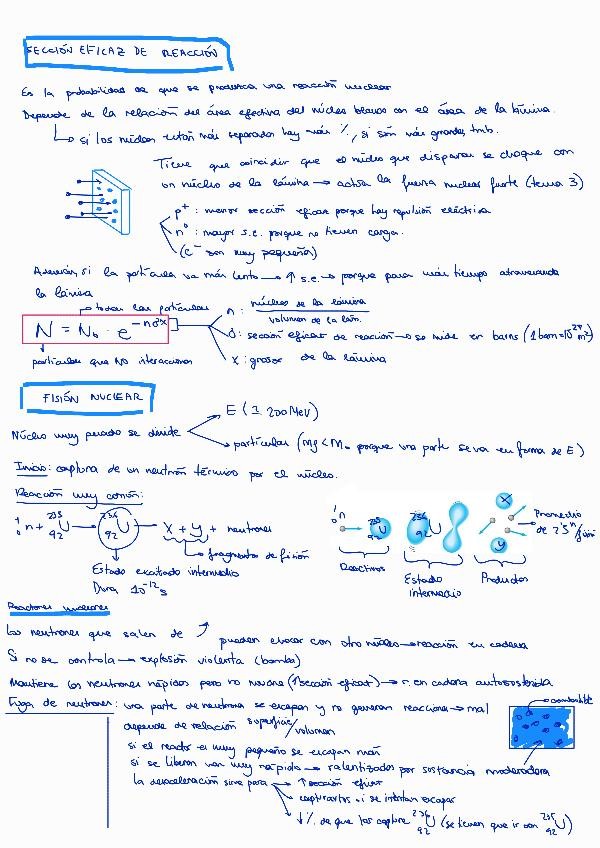 SECCIÓN EFICAZ DE REACCIÓN
Es la probabilidad de que se produzca una reacción nuclear
Depende de la relación del área efectiva del núcleo blanco con el área de la lámina.
↳ si los núcleos están más separados hay más %, si son más grandes, tmb.
Tiene que coincidir que el núcleo que disparas se choque con
un núcleo de la lámina → actúa la fuerza nuclear fuerte (tema 3)
p⁺ : menor sección eficaz porque hay repulsión eléctrica
n⁰ : mayor s.e. porque no tienen carga.
(e⁻ son muy pequeños)
Además, si la partícula va más lento → ↑ s.e. → porque pasa más tiempo atravesando
la lámina
→ todas las partículas
N = N₀ · e^(-nσx)
n : núcleos de la lámina / volumen de la lám.
σ : sección eficaz de reacción → se mide en barns (1 barn = 10⁻²⁸ m²)
x : grosor de la lámina
partículas que NO interaccionan
FISIÓN NUCLEAR
Núcleo muy pesado se divide
E (± 200 MeV)
partículas (Mf < M₀ porque una parte se va en forma de E)
Inicio: captura de un neutrón térmico por el núcleo.
Reacción muy común:
¹₀n + ²³⁵₉₂U → ²³⁶₉₂U → X + Y + neutrones
fragmentos de fisión
Estado excitado intermedio
Dura 10⁻¹² s
¹₀n ²³⁵₉₂U ²³⁶₉₂U X Y
Promedio
de 2'5 n/fisión
Reactivos
Estado
intermedio
Productos
Reactores nucleares
Los neutrones que salen de ↗ pueden chocar con otro núcleo → reacción en cadena
Si no se controla → explosión violenta (bomba)
Mantiene los neutrones rápidos pero no mucho (↑ sección eficaz) → r. en cadena autosostenida
Fuga de neutrones: una parte de neutrones se escapan y no generan reacciones → mal
depende de relación superficie/volumen
si el reactor es muy pequeño se escapan más
si se liberan van muy rápido → ralentizados por sustancia moderadora
combustible
la desaceleración sirve para → ↑ sección eficaz
capturarlos si se intentan escapar
↓ % de que los capture ²³⁶₉₂U (se tienen que ir con ²³⁵₉₂U)